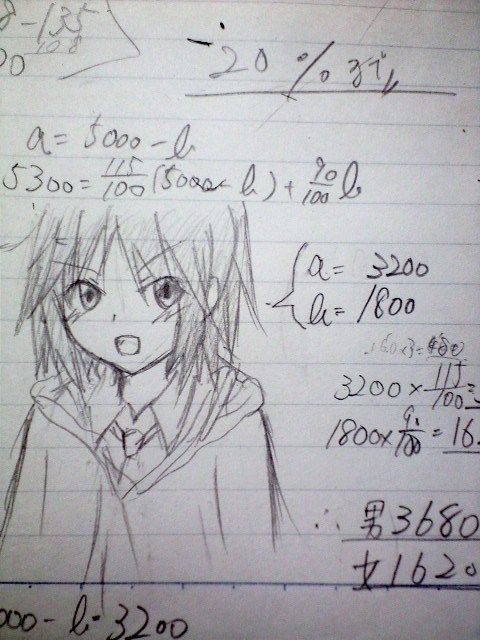 8-135
108
20
20%引
a = 5000 - b
5300 = 115/100 (5000 - b) + 90/100 b
{ a = 3200
b = 1800
160×3=480
3200 × 115/100 =
1800 × 9/100 = 16
∴ 男3680
女1620
000 - b = 3200